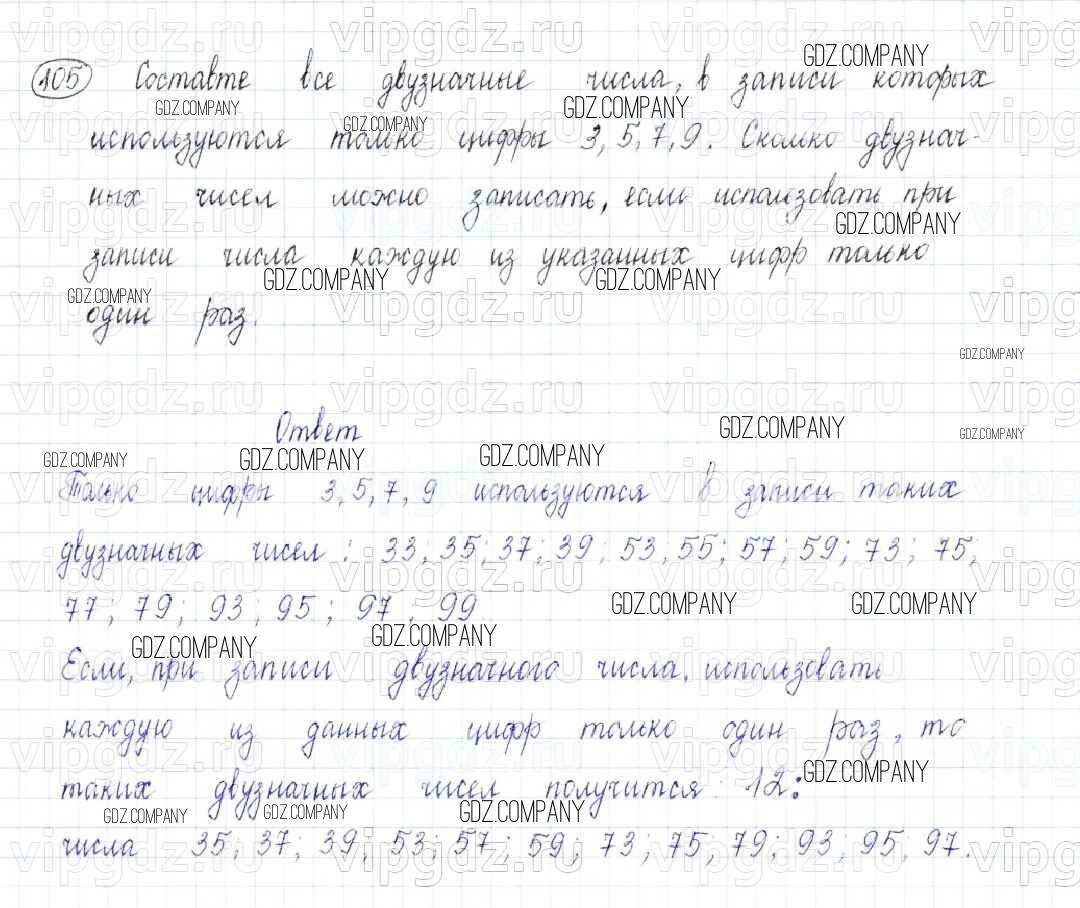 105 Составте все двузначные числа, в записи которых
используются только цифры 3, 5, 7, 9. Сколько двузнач-
ных чисел можно записать, если использовать при
записи числа каждую из указанных цифр только
один раз.
Ответ
Только цифры 3, 5, 7, 9 используются в записи таких
двузначных чисел: 33, 35; 37; 39; 53, 55; 57; 59; 73; 75;
77; 79; 93; 95; 97, 99
Если, при записи двузначного числа, использовать
каждую из данных цифр только один раз, то
таких двузначных чисел получится 12:
числа 35; 37; 39; 53; 57; 59; 73; 75, 79; 93; 95, 97.
GDZ.COMPANY
vipgdz.ru